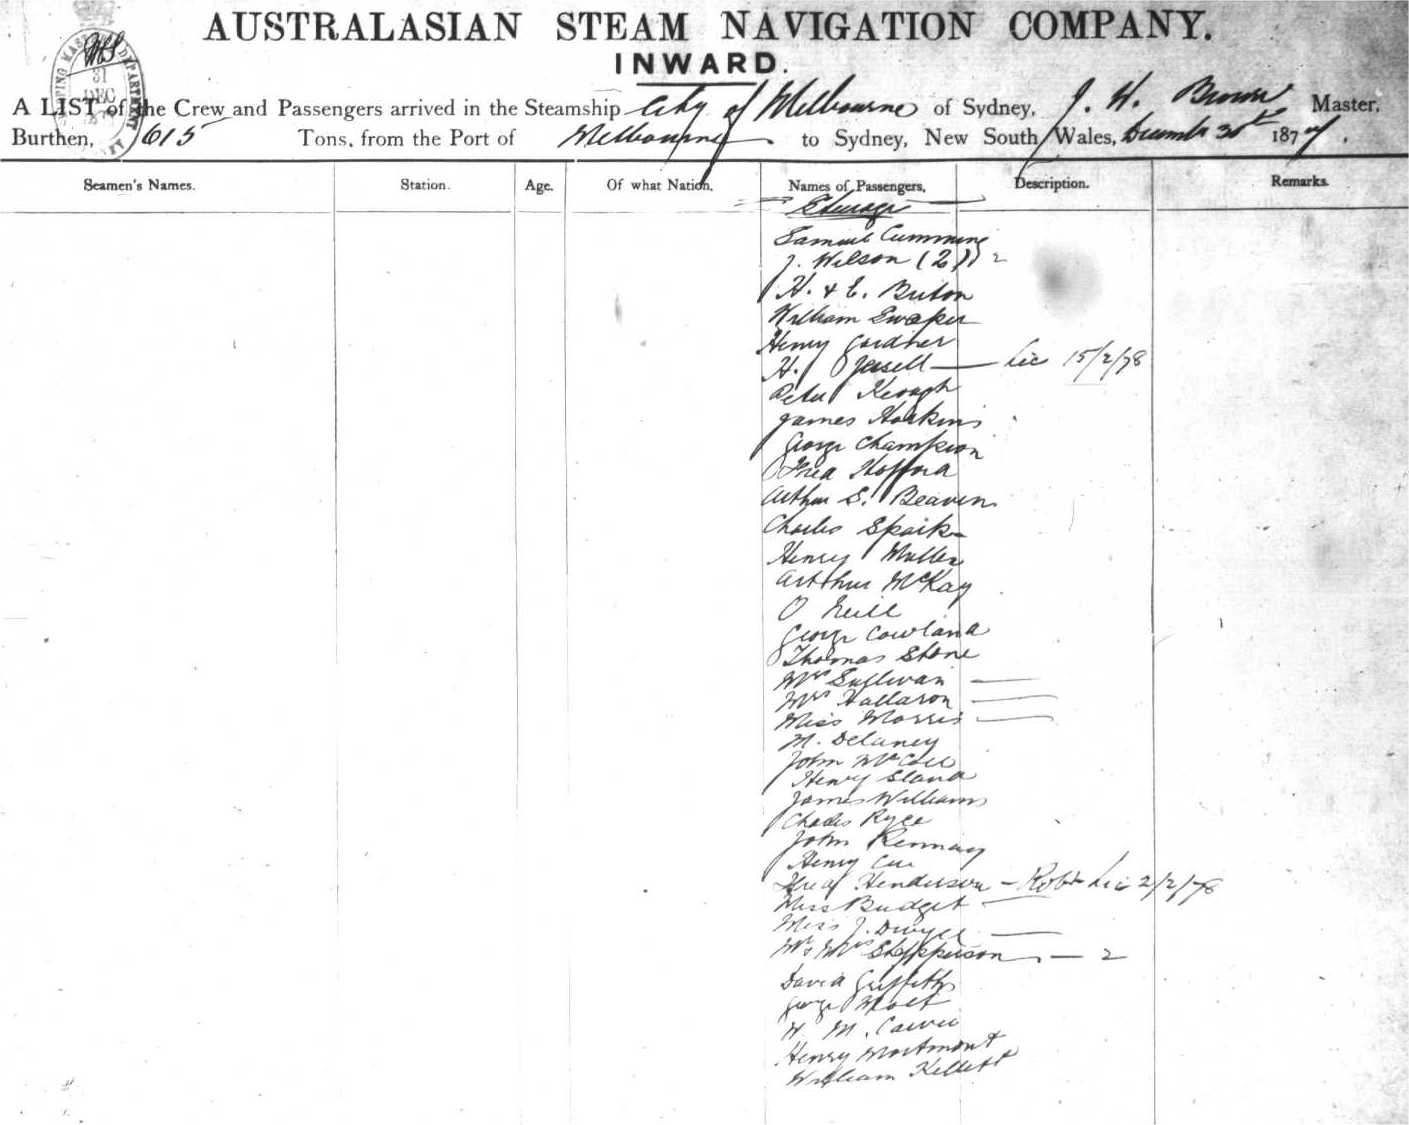 AUSTRALASIAN STEAM NAVIGATION COMPANY.
INWARD.
31 DEC
A LIST of the Crew and Passengers arrived in the Steamship City of Melbourne of Sydney, J. H. Brown Master,
Burthen, 615 Tons, from the Port of Melbourne to Sydney, New South Wales, 30th 1877.
Seamen's Names. Station. Age. Of what Nation. Names of Passengers. Description. Remarks.
Steerage
Samuel Cumming
J. Wilson (2) 2
H. & E. Buton
William
Henry Gardner
H. Jessell — Lic 15/2/78
Peter Keough
James Hoskins
George Champion
Fred Hofford
Arthur S. Beaven
Charles Spaik
Henry Muller
Arthur McKay
O Neill
George Cowland
Thomas Stone
Mrs Sullivan —
Mrs Hallaron —
Miss Morris —
M. Delaney
John McColl
Henry Sland
James Williams
Charles Ryce
John Kennay
Henry
Fred Henderson — Robt Lic 2/2/78
Miss Budget —
Miss J. Dwyer —
Mr & Mrs Stepperson — 2
David Griffiths
George
W. M.
Henry Mortmont
William Kellett